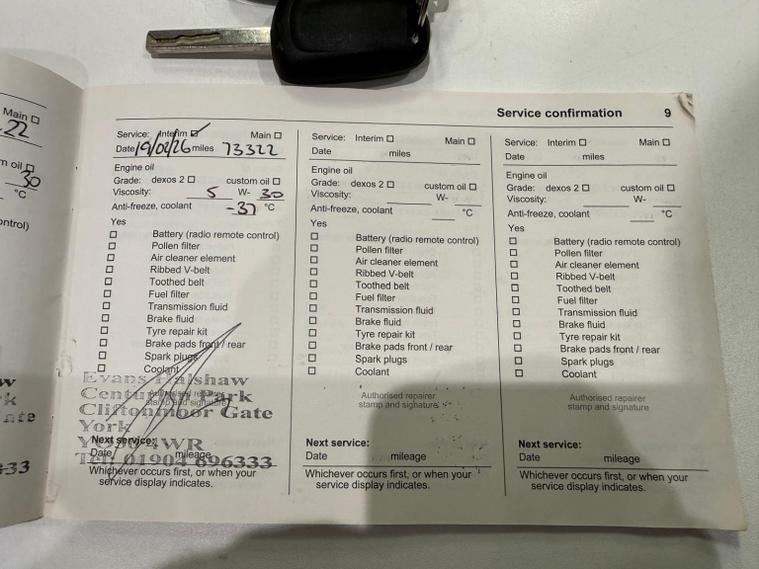 Main ☐
22
m oil ☐
30
°C
ontrol)
Service confirmation 9
Service: Interim ☑ Main ☐
Date 19/02/26 miles 73322
Engine oil
Grade: dexos 2 ☐ custom oil ☐
Viscosity: 5 W- 30
Anti-freeze, coolant -37 °C
Yes
☐ Battery (radio remote control)
☐ Pollen filter
☐ Air cleaner element
☐ Ribbed V-belt
☐ Toothed belt
☐ Fuel filter
☐ Transmission fluid
☐ Brake fluid
☐ Tyre repair kit
☐ Brake pads front / rear
☐ Spark plugs
☐ Coolant
Evans Halshaw
Authorised repairer
stamp and signature
Century Park
Cliftonmoor Gate
York
Next service:
Date mileage
Tel: 01904 696333
Whichever occurs first, or when your
service display indicates.
Service: Interim ☐ Main ☐
Date miles
Engine oil
Grade: dexos 2 ☐ custom oil ☐
Viscosity: W-
Anti-freeze, coolant °C
Yes
☐ Battery (radio remote control)
☐ Pollen filter
☐ Air cleaner element
☐ Ribbed V-belt
☐ Toothed belt
☐ Fuel filter
☐ Transmission fluid
☐ Brake fluid
☐ Tyre repair kit
☐ Brake pads front / rear
☐ Spark plugs
☐ Coolant
Authorised repairer
stamp and signature
Next service:
Date mileage
Whichever occurs first, or when your
service display indicates.
Service: Interim ☐ Main ☐
Date miles
Engine oil
Grade: dexos 2 ☐ custom oil ☐
Viscosity: W-
Anti-freeze, coolant °C
Yes
☐ Battery (radio remote control)
☐ Pollen filter
☐ Air cleaner element
☐ Ribbed V-belt
☐ Toothed belt
☐ Fuel filter
☐ Transmission fluid
☐ Brake fluid
☐ Tyre repair kit
☐ Brake pads front / rear
☐ Spark plugs
☐ Coolant
Authorised repairer
stamp and signature
Next service:
Date mileage
Whichever occurs first, or when your
service display indicates.